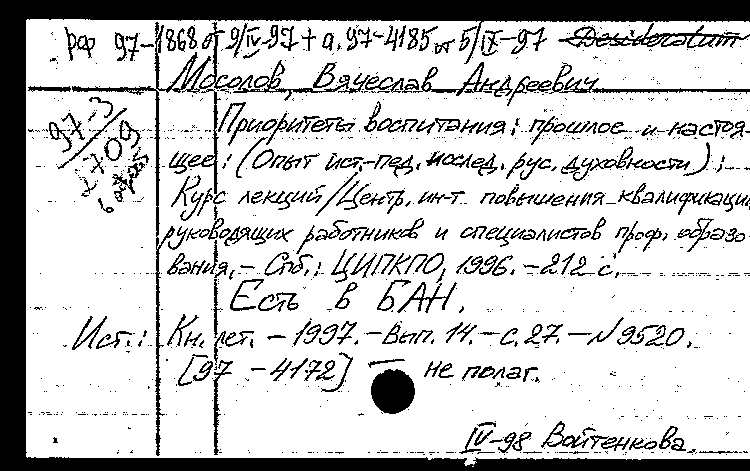 рф 97-1868 от 9/IV-97 + а. 97-4185 от 5/IX-97 Desideratum
Мосолов, Вячеслав Андреевич
97-3
1709
Приоритеты воспитания: прошлое и настоя-
щее: (Опыт ист.-пед. исслед. рус. духовности):
Курс лекций / Центр. ин-т повышения квалификации
руководящих работников и специалистов проф. образо-
вания. - Спб.: ЦИПКПО, 1996. - 212 с.
Есть в БАН.
Ист.: Кн. лет. - 1997. - Вып. 14. - с. 27. - N 9520.
[97 - 4172] — не полаг.
IV-98 Войтенкова.